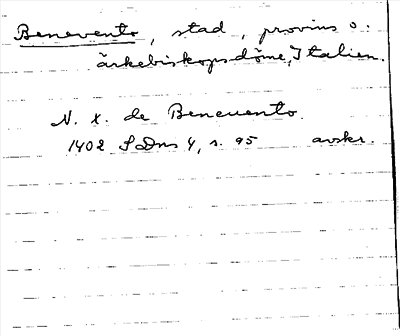 Benevento, stad, provins o.
ärkebiskopsdöme, Italien.
N. X. de Beneuento.
1402 SDns 4, s. 95 avskr.